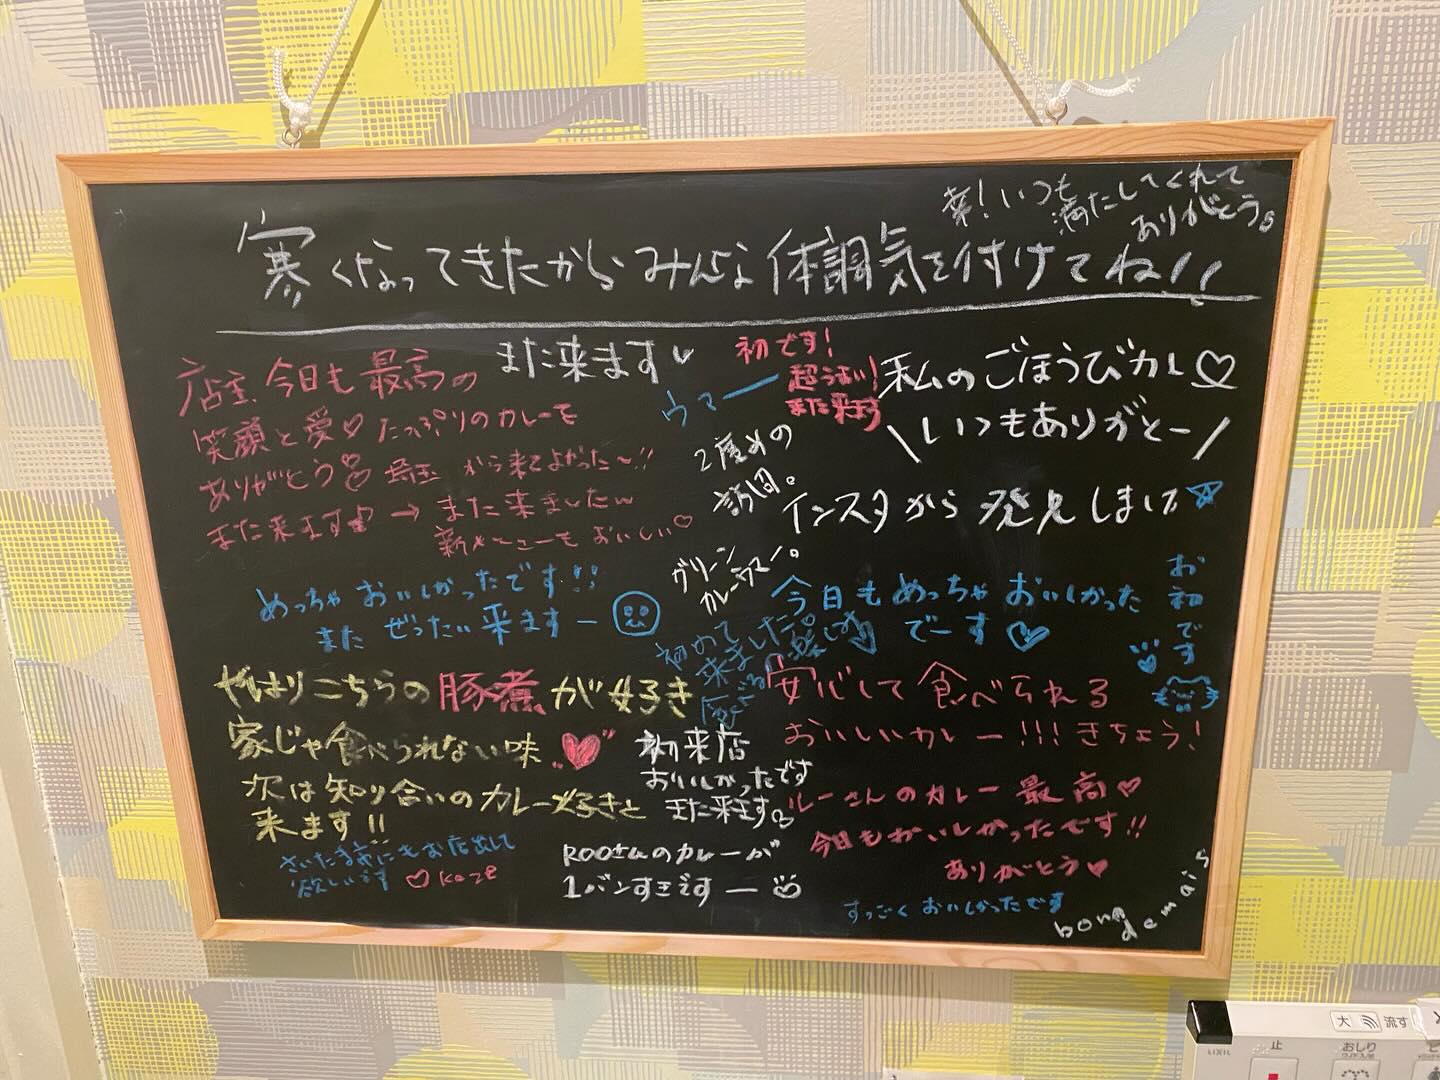 いつも
満たしてくれて
ありがとう
寒くなってきたからみんな体調気を付けてね!!
店主 今日も最高の
笑顔と愛♡たっぷりのカレーを
ありがとう 埼玉から来てよかった〜!!
また来ます → また来ましたw
新メニューもおいしい♡
また来ます♡
ウマー
初です!
超うまい!
また来ます
私のごほうびカレー♡
\いつもありがとー/
2度めの
訪問。
グリーン
カレーウマー。
インスタから発見しました
めっちゃおいしかったです!!
また ぜったい来ますー
今日もめっちゃおいしかった
でーす♡
お初です
初めて
来ました
やはりこちらの豚煮が好き
家じゃ食べられない味
次は知り合いのカレー好きと
来ます!!
安心して食べられる
おいしいカレー!!!きちょう!
初来店
おいしかったです
また来ます
るーさんのカレー最高♡
今日もおいしかったです!!
ありがとう♥
さいたま市にもお店出して
欲しいです ♡
ROOさんのカレーが
1バンすきですー
すっごくおいしかったです
bong
demais
大 流す
止
おしり
LIXIL